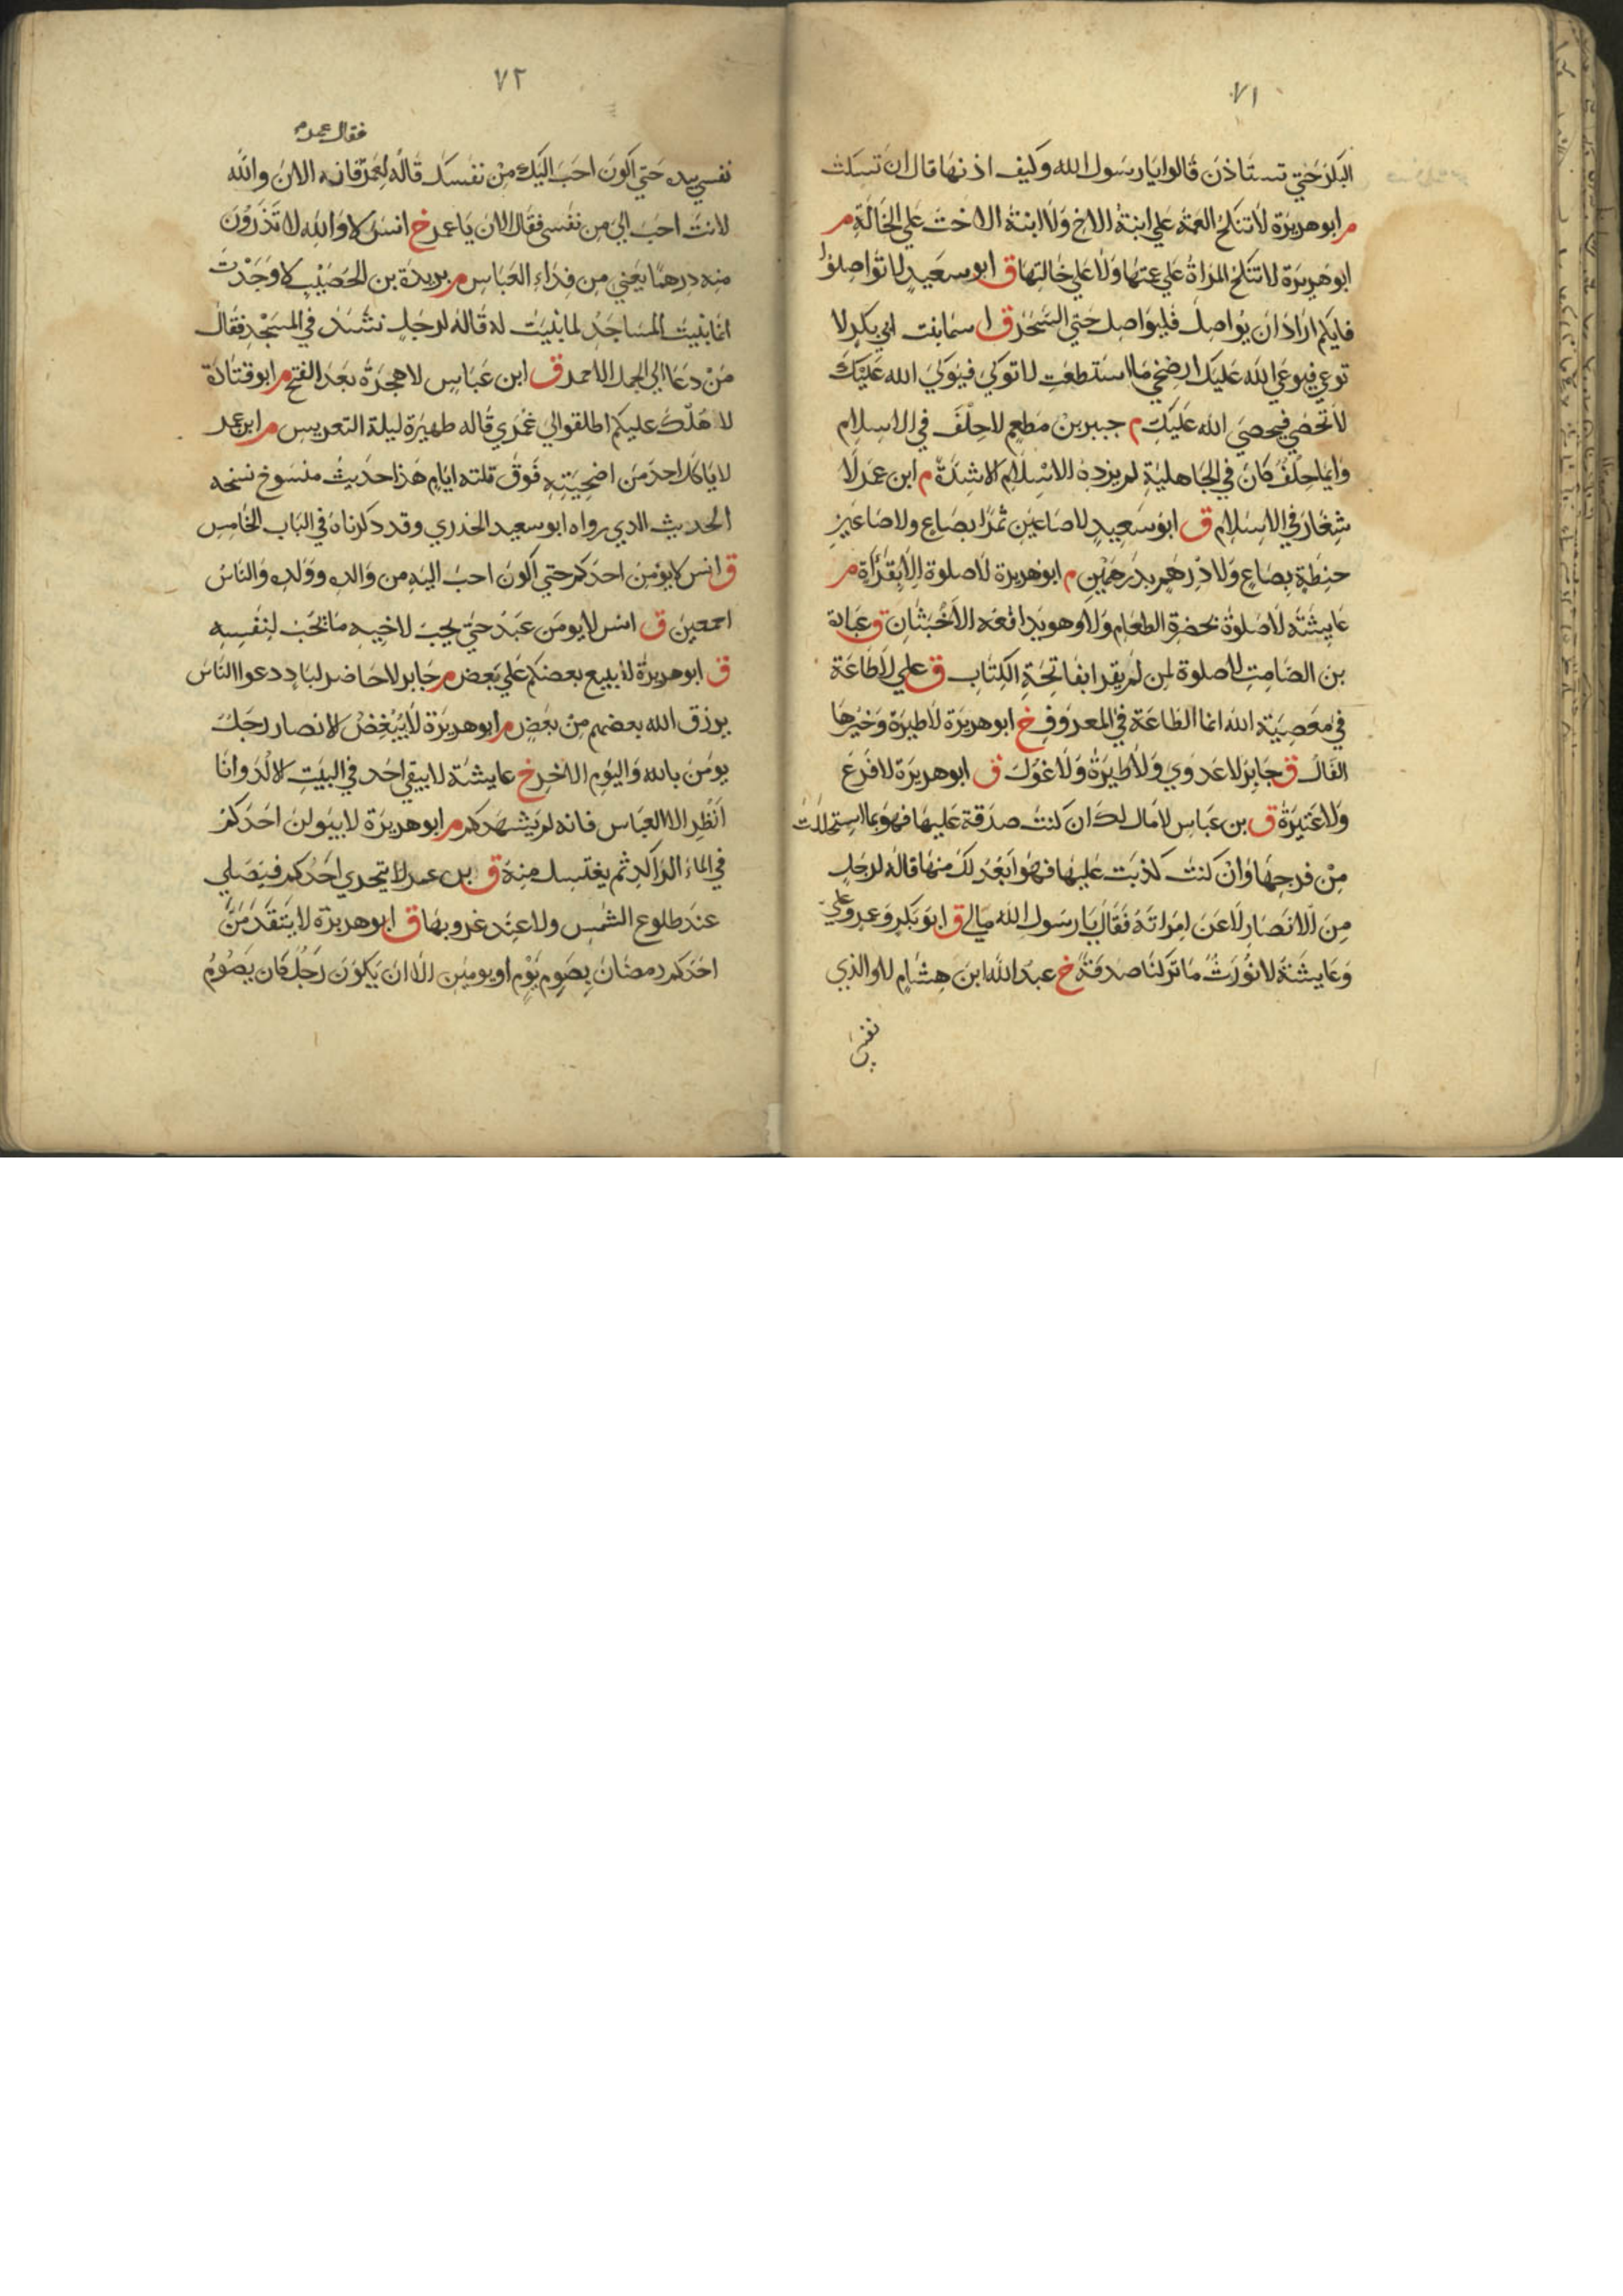 ٧١
البكر حتي تستاذن قالوا يا رسول الله وكيف اذنها قال ان تسكت
م ابو هريرة لا تنكح العمة علي ابنة الاخ ولا ابنة الاخت علي الخالة م
ابو هريرة لا تنكح المراة علي عمتها ولا علي خالتها ق ابو سعيد لا تواصلوا
فايكم اراد ان يواصل فليواصل حتي السحر ق اسما بنت ابي بكر لا
توعي فيوعي الله عليك ارضخي ما استطعت لا توكي فيوكي الله عليك
لا تحصي فيحصي الله عليك م جبير بن مطعم لا حلف في الاسلام
وايما حلف كان في الجاهلية لم يزده الاسلام الا شدة م ابن عمر لا
شغار في الاسلام ق ابو سعيد لا صاعين تمرا بصاع ولا صاعين
حنطة بصاع ولا درهم بدرهمين م ابو هريرة لا صلوة الا بقراة م
عايشة لا صلوة بحضرة الطعام ولا وهو يدافعه الاخبثان ق عبادة
بن الصامت لا صلوة لمن لم يقرا بفاتحة الكتاب ق علي لا طاعة
في معصية الله انما الطاعة في المعروف خ ابو هريرة لا طيرة وخيرها
الفال ق جابر لا عدوي ولا طيرة ولا غول ق ابو هريرة لا فرع
ولا عتيرة ق بن عباس لا مال لك ان كنت صدقة عليها فهو بما استحللت
من فرجها وان كنت كذبت عليها فهو ابعد لك منها قاله لرجل
من الانصار لاعن امراته فقال يا رسول الله مالي ق ابو بكر وعمر وعلي
وعايشة لا نورث ما تركنا صدقة خ عبد الله ابن هشام لا والذي
نفسي
٧٢
فقال عمر
نفسي بيده حتي اكون احب اليك من نفسك قاله لعمر فانه الان والله
لانت احب الي من نفسي فقال الان يا عمر خ انس لا والله لا تذرون
منه درهما يعني من فداء العباس م بريدة بن الحصيب لا وجدت
انما بنيت المساجد لما بنيت له قاله لرجل نشد في المسجد فقال
من دعا الي الجمل الاحمر ق ابن عباس لا هجرة بعد الفتح م ابو قتادة
لا هلك عليكم اطلقوا لي غمري قاله ظهيرة ليلة التعريس م ابن عمر
لا ياكل احد من اضحيته فوق ثلثه ايام هذا حديث منسوخ نسخه
الحديث الدي رواه ابو سعيد الخدري وقد دكرناه في الباب الخامس
ق انس لا يومن احدكم حتي اكون احب اليه من والده وولده والناس
اجمعين ق انس لا يومن عبد حتي يحب لاخيه ما يحب لنفسه
ق ابو هريرة لا يبيع بعضكم علي بعض م جابر لا حاضر لباد دعوا الناس
يرزق الله بعضهم من بعض م ابو هريرة لا يبغض الانصار رجل
يومن بالله واليوم الاخر خ عايشة لا يبقي احد في البيت الا لد وانا
انظر الا العباس فانه لم يشهدكم م ابو هريرة لا يبولن احدكم
في الماء الراكد ثم يغتسل منه ق بن عمر لا يتحري احدكم فيصلي
عند طلوع الشمس ولا عند غروبها ق ابو هريرة لا يتقدمن
احدكم رمضان بصوم يوم او يومين الا ان يكون رجل كان يصوم